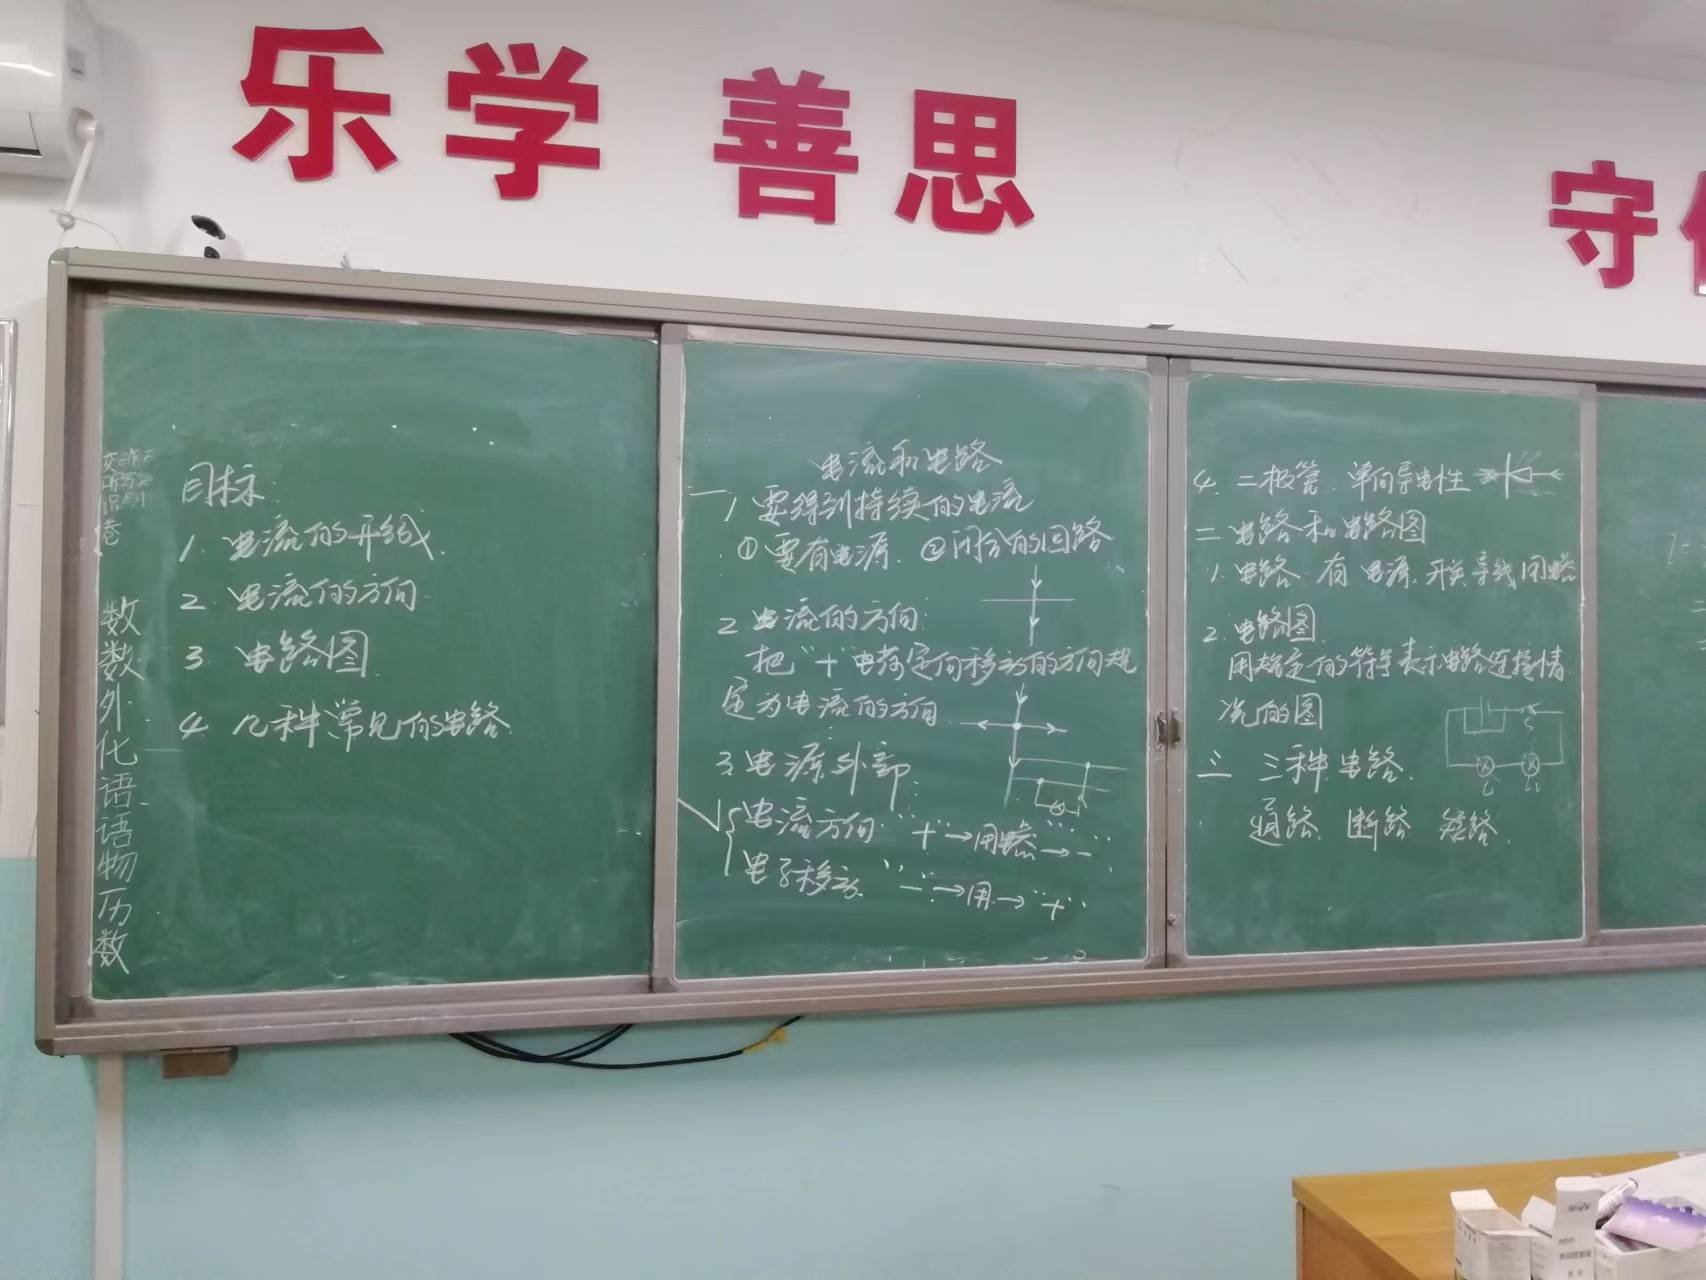 乐学 善思
守
目标:
1. 电流的形成
2. 电流的方向
3. 电路图
4. 几种常见的电路
数
数
外
化
语
语
物
历
数
电流和电路
一
1. 要得到持续的电流
①要有电源. ②闭合的回路
2. 电流的方向:
把“+”电荷定向移动的方向规
定为电流的方向
3. 电源外部
电流方向 “+”→用电器→“-”
电子移动 “-”→用→“+”
4. 二极管. 单向导电性
二 电路和电路图
1. 电路. 有电源. 开关 导线 用电器
2. 电路图
用规定的符号表示电路连接情
况的图
三 三种电路.
通路. 断路 短路.